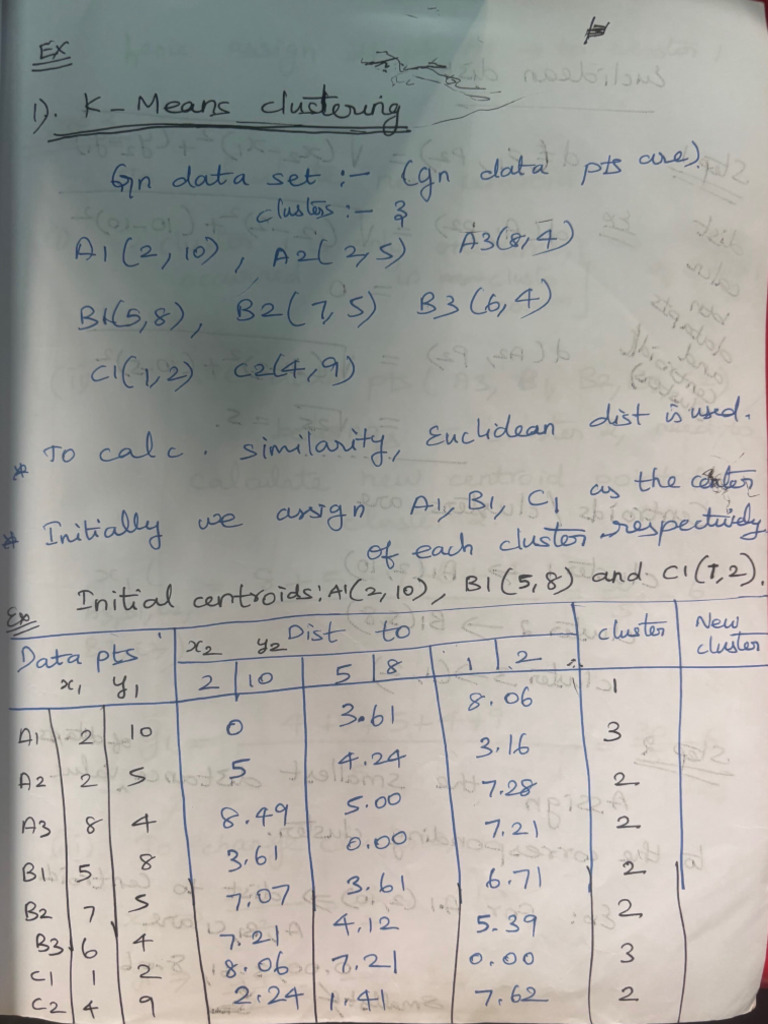 Ex
1). K-Means clustering
Gn data set :- (gn data pts are).
clusters :- 3
A1(2,10), A2(2,5) A3(8,4)
B1(5,8), B2(7,5) B3(6,4)
C1(1,2) C2(4,9)
* To calc. similarity, Euclidean dist is used.
* Initially we assign A1, B1, C1 as the center
of each cluster respectively.
Initial centroids: A1(2,10), B1(5,8) and C1(1,2).
Ex
Data pts x2 y2 Dist to cluster New cluster
x1 y1 2 10 5 8 1 2
A1 2 10 0 3.61 8.06 1
A2 2 5 5 4.24 3.16 3
A3 8 4 8.49 5.00 7.28 2
B1 5 8 3.61 0.00 7.21 2
B2 7 5 7.07 3.61 6.71 2
B3 6 4 7.21 4.12 5.39 2
C1 1 2 8.06 7.21 0.00 3
C2 4 9 2.24 1.41 7.62 2